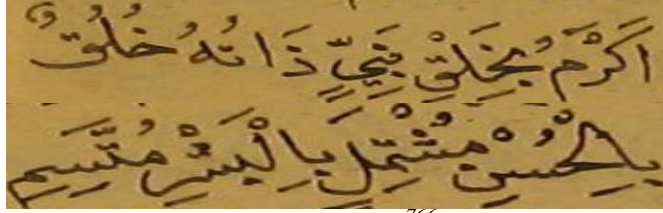 اَكْرَمْ بِخَلْقِ نَبِيٍّ ذَانُهُ خُلُقٌ
بِالْحُسْنِ مُشْتَمِلٍ بِالْبَشَرِ مُتَّسِمِ